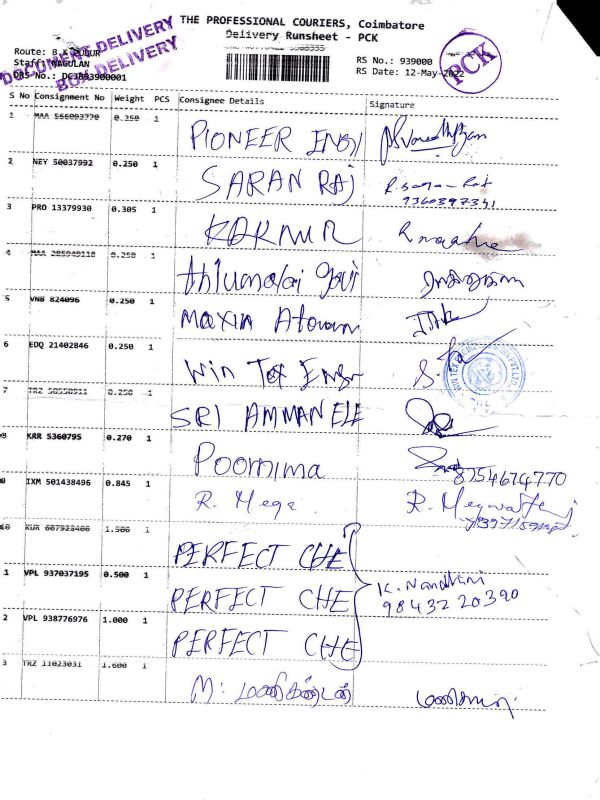 THE PROFESSIONAL COURIERS, Coimbatore
Delivery Runsheet - PCK
DOCUMENT DELIVERY
BOX DELIVERY
Route: B.K.PUDUR
Staff: NAGULAN
DRS No.: DCJB93900001
RS No.: 939000
RS Date: 12-May-2022
PCK
S No Consignment No Weight PCS Consignee Details Signature
1 MAA 566093770 0.250 1 PIONEER ENGI
2 NEY 50037992 0.250 1 SARAN RAJ
9360397341
3 PRO 13379930 0.305 1
4 MAA 285940118 0.250 1
5 VNB 824096 0.250 1
6 EDQ 21402846 0.250 1 Win Tex Engr
7 TRZ 50550911 0.250 1 SRI AMMAN ELE
8 KRR 5360795 0.270 1 Poornima 8754674770
9 IXM 501438496 0.845 1 R. Mega
10 KUR 607923406 1.500 1 PERFECT CHE
1 VPL 937037195 0.500 1 PERFECT CHE K. Nandhini
9843220390
2 VPL 938776976 1.000 1 PERFECT CHE
3 TRZ 11023031 1.600 1 M. மணிகண்டன்